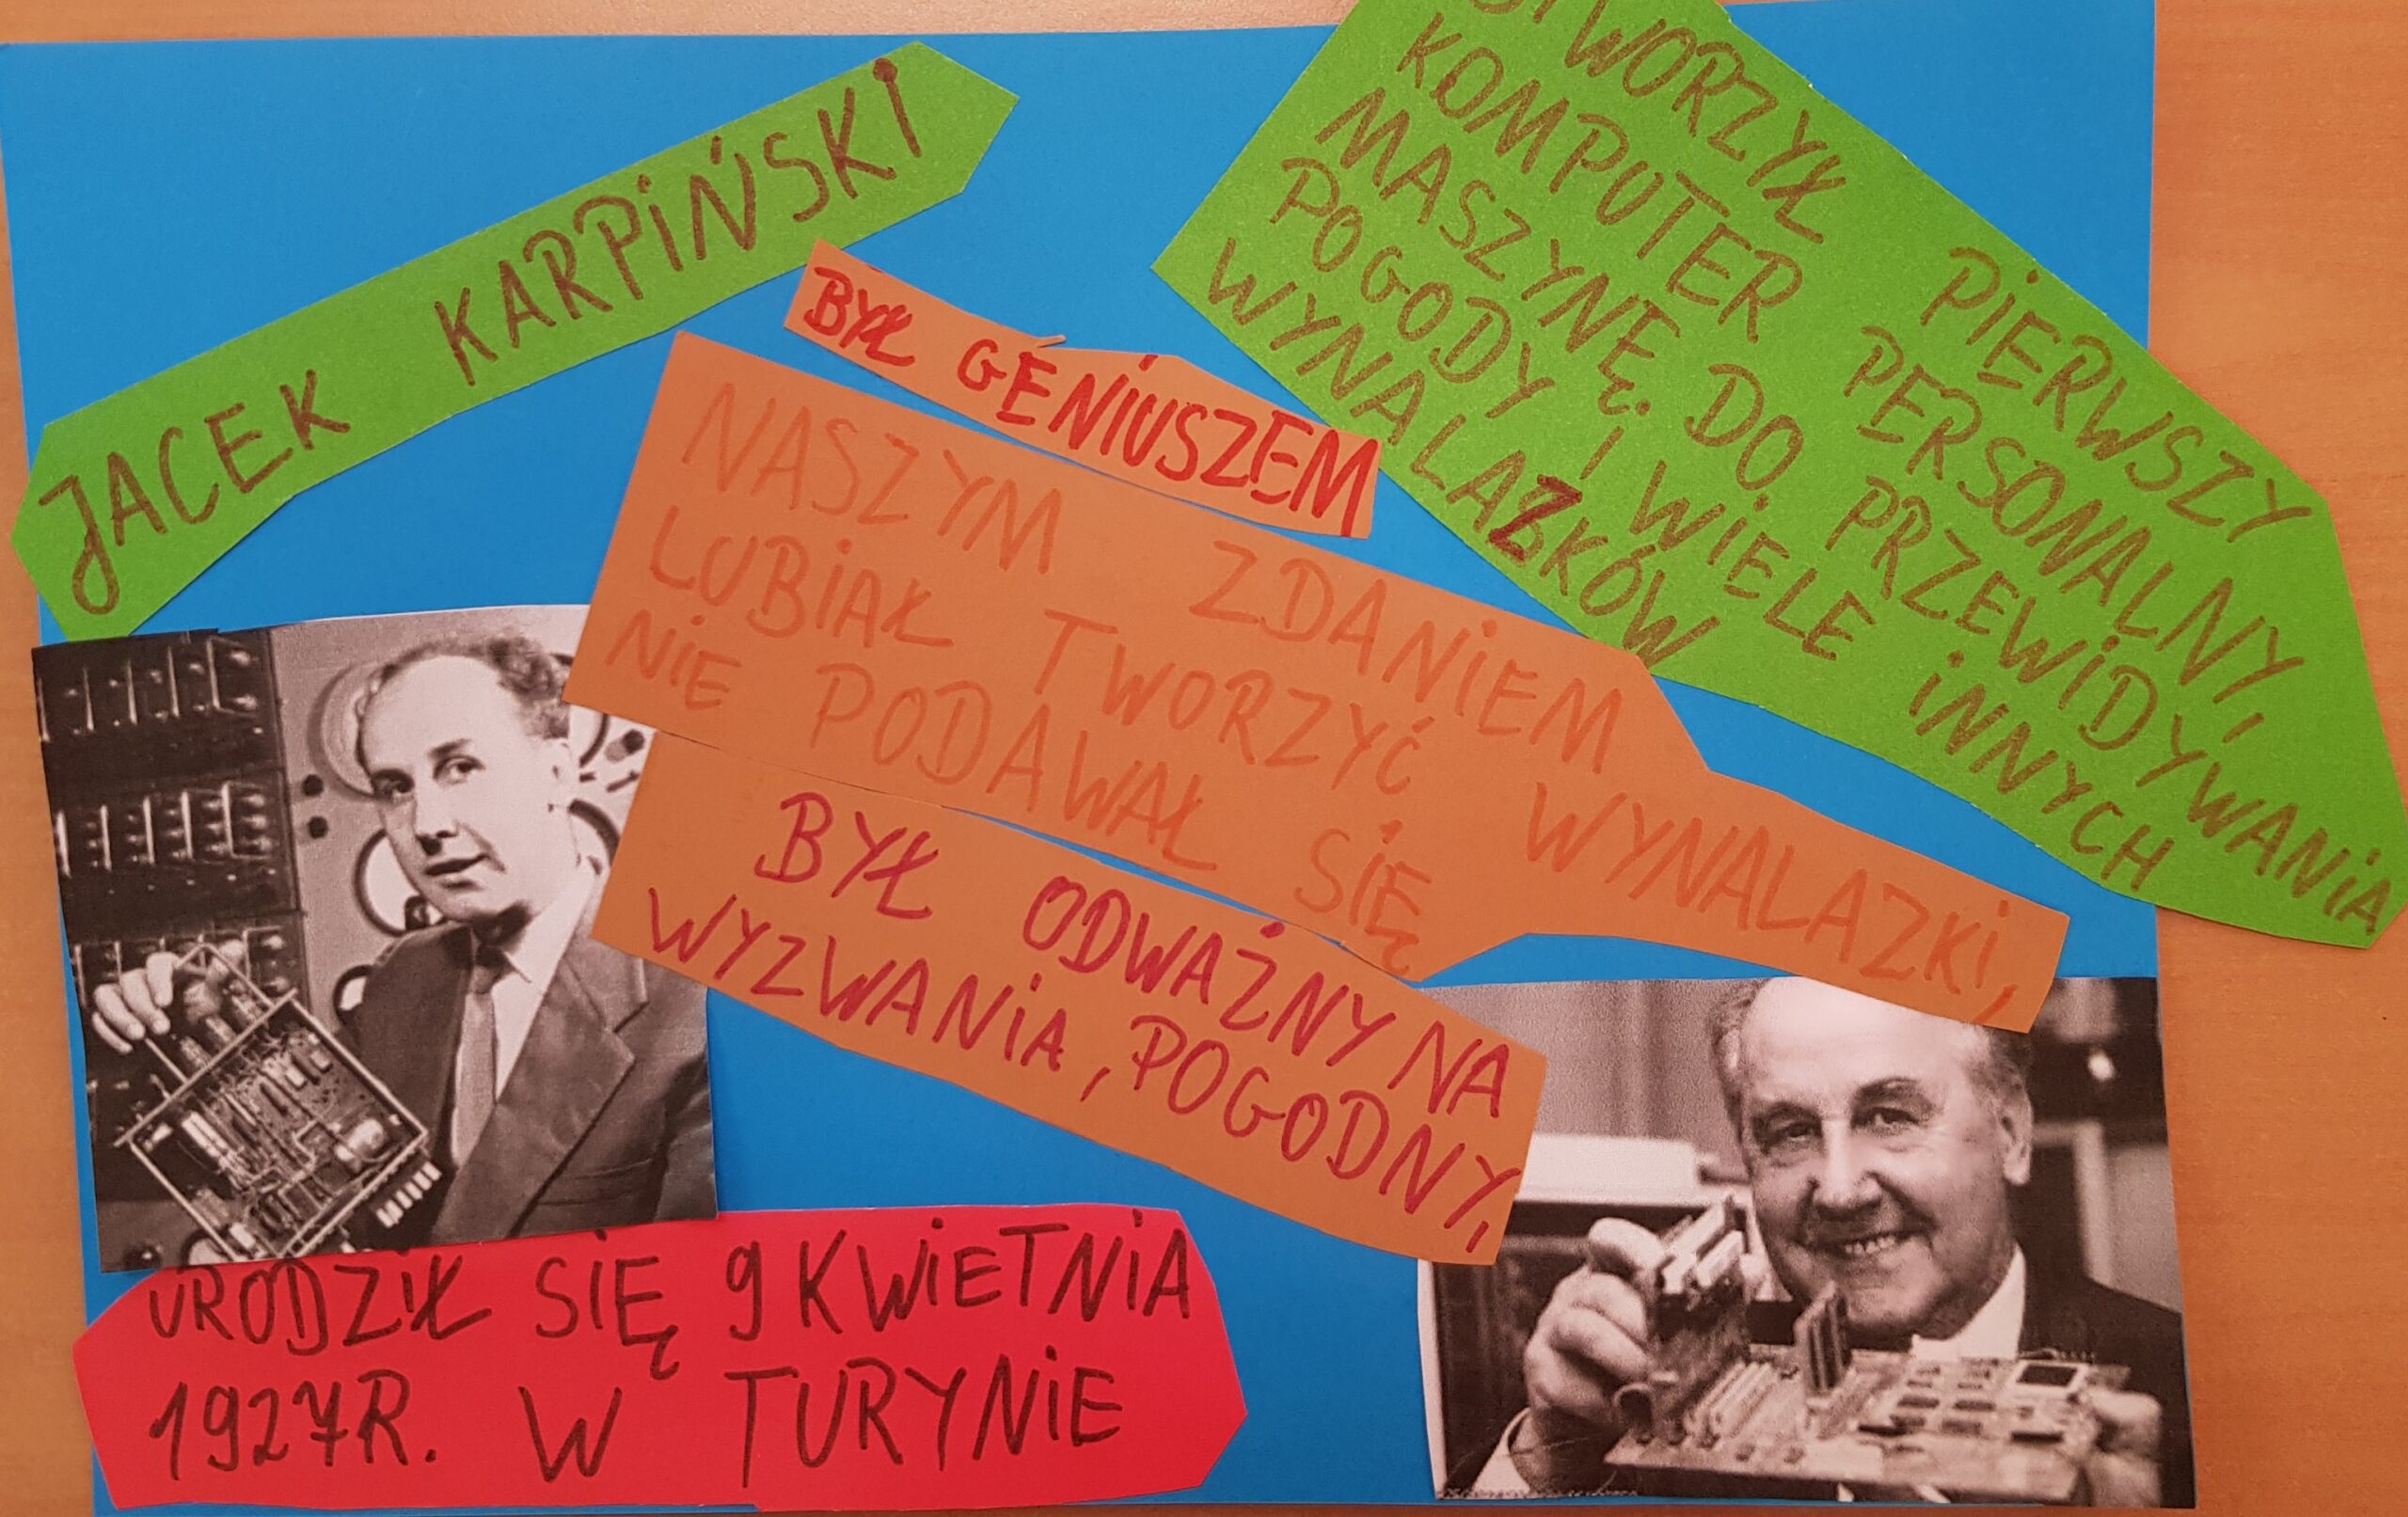 JACEK KARPIŃSKI
STWORZYŁ PIERWSZY
KOMPUTER PERSONALNY,
MASZYNĘ DO PRZEWIDYWANIA
POGODY I WIELE INNYCH
WYNALAZKÓW
BYŁ GENIUSZEM
NASZYM ZDANIEM
LUBIAŁ TWORZYĆ WYNALAZKI,
NIE PODAWAŁ SIĘ
BYŁ ODWAŻNY NA
WYZWANIA, POGODNY,
URODZIŁ SIĘ 9 KWIETNIA
1927R. W TURYNIE